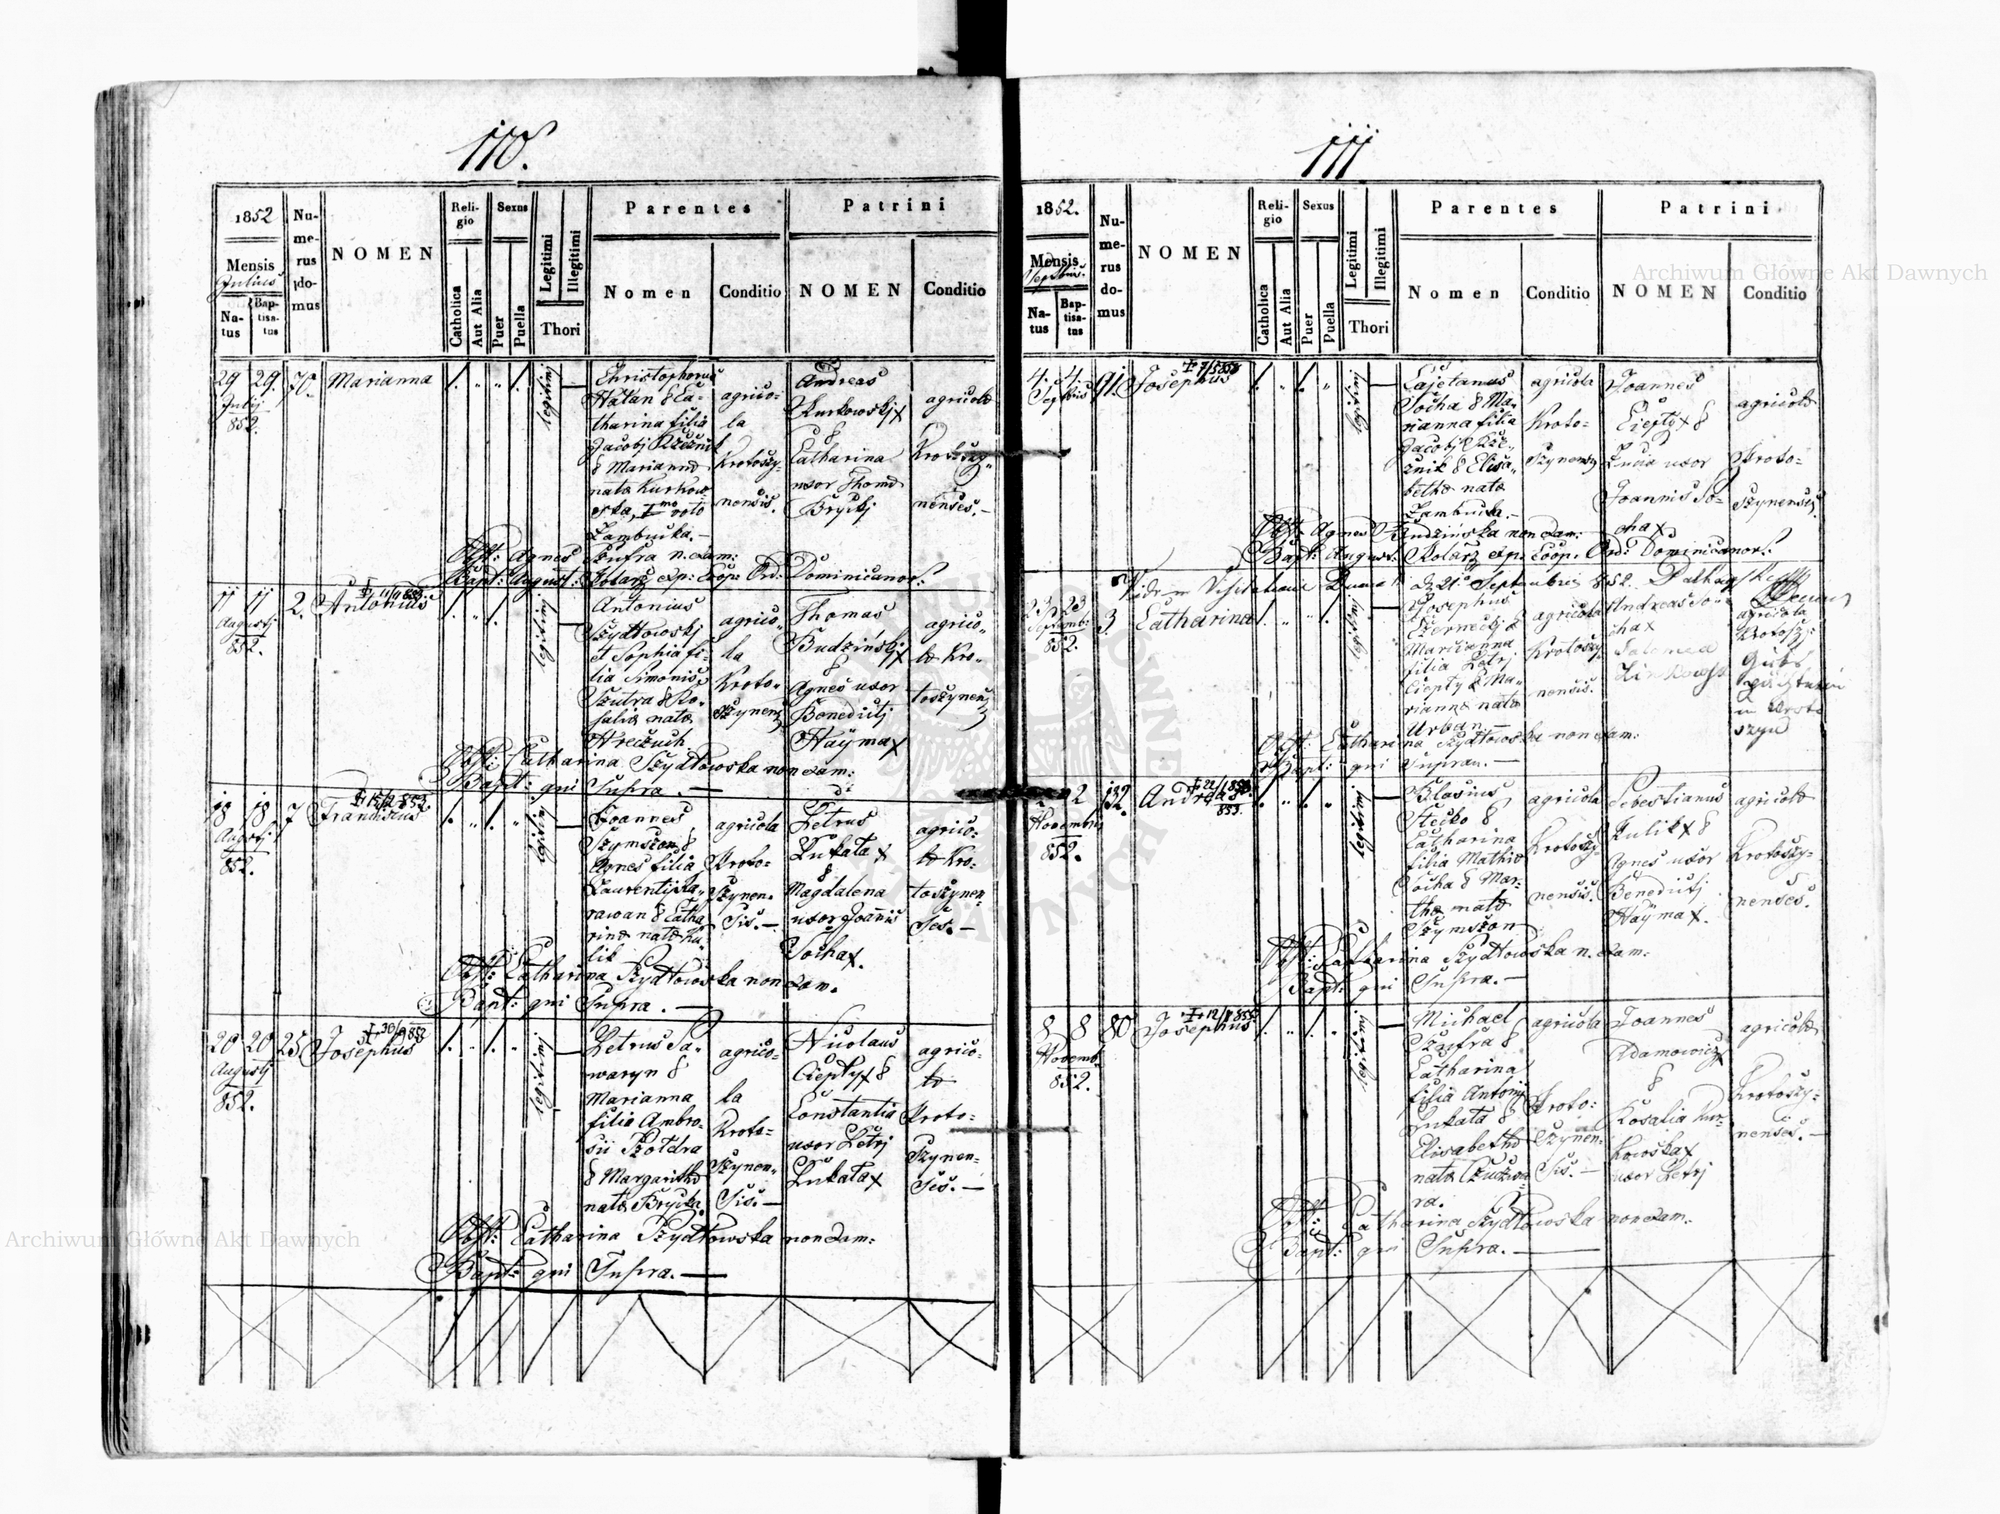 110.
1852
Mensis
Julius
Na-
tus
Bap-
tisa-
tus
Nu-
me-
rus
do-
mus
NOMEN
Reli-
gio
Catholica
Aut Alia
Sexus
Puer
Puella
Legitimi
Illegitimi
Thori
Parentes
Nomen
Conditio
Patrini
NOMEN
Conditio
29 29. 70. Marianna
Julij
852.
legitimi
Christophorus
Hatan & Ca-
tharina filia
Jacobj
& Marianna
nata Kurkow
ska,
Zambucka.—
agrico-
la
Krotoszy-
nensis.
Andreas
Kurkowskj x
&
Catharina
uxor Thoma
Bryckj
agricola
Krotoszy-
nenses.—
Obst: Agnes Szufra n. exam:
Bapt: August: Kolarz exp: Coop: Ord: Dominicanor:
11 11 2. Antonius
Augustj
852.
legitimj
Antonius
Szydłowskj
et Sophia fi-
lia Simonis
Szutra & Ro-
salia nata
Hreczuch
agrico-
la
Kroto-
szynens
Thomas
Budzińskj x
&
Agnes uxor
Benedictj
Hayma x
agrico-
la Kro-
toszynens
Obst: Catharina Szydłowska non exam:
Bapt: qui Supra.—
18 18 7 Franciscus
Augustj
852.
legitimj
Joannes
Szymszon &
Agnes filia
Laurentij Ka-
rawan & Catha
rina nata Ku-
lik
agricola
Kroto-
szynen-
sis.—
Petrus
Łukata x
&
Magdalena
uxor Joannis
Socha x.
agrico-
la Kro-
toszynen-
ses.—
Obst: Catharina Szydłowska non exam.
Bapt: qui Supra.—
20 20 25 Josephus
Augustj
852.
legitimj
Petrus Sa-
waryn &
Marianna
filia Ambro-
sii Kołdra
& Margaritha
nata Brycka
agrico-
la
Kroto-
szynen-
sis.—
Nicolaus
Ciepły x &
Constantia
uxor Petrj
Łukata x
agrico-
la
Kroto-
szynen-
ses.—
Obst: Catharina Szydłowska non exam:
Bapt: qui Supra.—
111
1852.
Mensis
Septbris.
Na-
tus
Bap-
tisa-
tus
Nu-
me-
rus
do-
mus
NOMEN
Reli-
gio
Catholica
Aut Alia
Sexus
Puer
Puella
Legitimi
Illegitimi
Thori
Parentes
Nomen
Conditio
Patrini
NOMEN
Conditio
4. 4. 91. Josephus
Septbris
Cajetanus
Socha & Ma-
rianna filia
Jacobj
& Elisa-
betha nata
Zambucka.—
agricola
Kroto-
szynensis
Joannes
Ciepły x &
Lucia uxor
Joannis So-
cha x
agricola
Kroto-
szynenses.
Obst: Agnes Budzińska non exam:
Bapt: August: Kolarz exp: Coop: Ord: Dominicanor:
Vide in Visitatione 21 Septembris 852.
23 23 3 Catharina
Septemb:
852.
Josephus
Czerneckj &
Marianna
filia Petrj
Ciepły & Ma-
rianna nata
Urban.—
agricola
Krotoszy-
nensis.
Andreas So-
cha x
Salomea
agricola
Krotosz:
Obst: Catharina Szydłowska non exam:
Bapt: qui Supra.—
2 2 132. Andreas
Novembris
852.
legitimj
Blasius
Stecko &
Catharina
filia Mathia
Socha & Mar-
tha nata
Szymszon
agricola
Krotoszy-
nensis.
Sebestianus
Kulik x &
Agnes uxor
Benedictj
Hayma x.
agricola
Krotoszy-
nenses.
Obst: Catharina Szydłowska n. exam.
Bapt: qui Supra.—
8 8 80 Josephus
Novemb:
852.
Michael
Szufra &
Catharina
filia Antonj
Łukata &
Elisabetha
nata
agricola
Kroto-
szynen-
sis.—
Joannes
Adamowicz x
&
Rosalia Kur-
kowska x
uxor Petrj
agricola
Krotoszy-
nenses.—
Obst: Catharina Szydłowska non exam.
Bapt: qui Supra.—
Archiwum Główne Akt Dawnych
Archiwum Główne Akt Dawnych